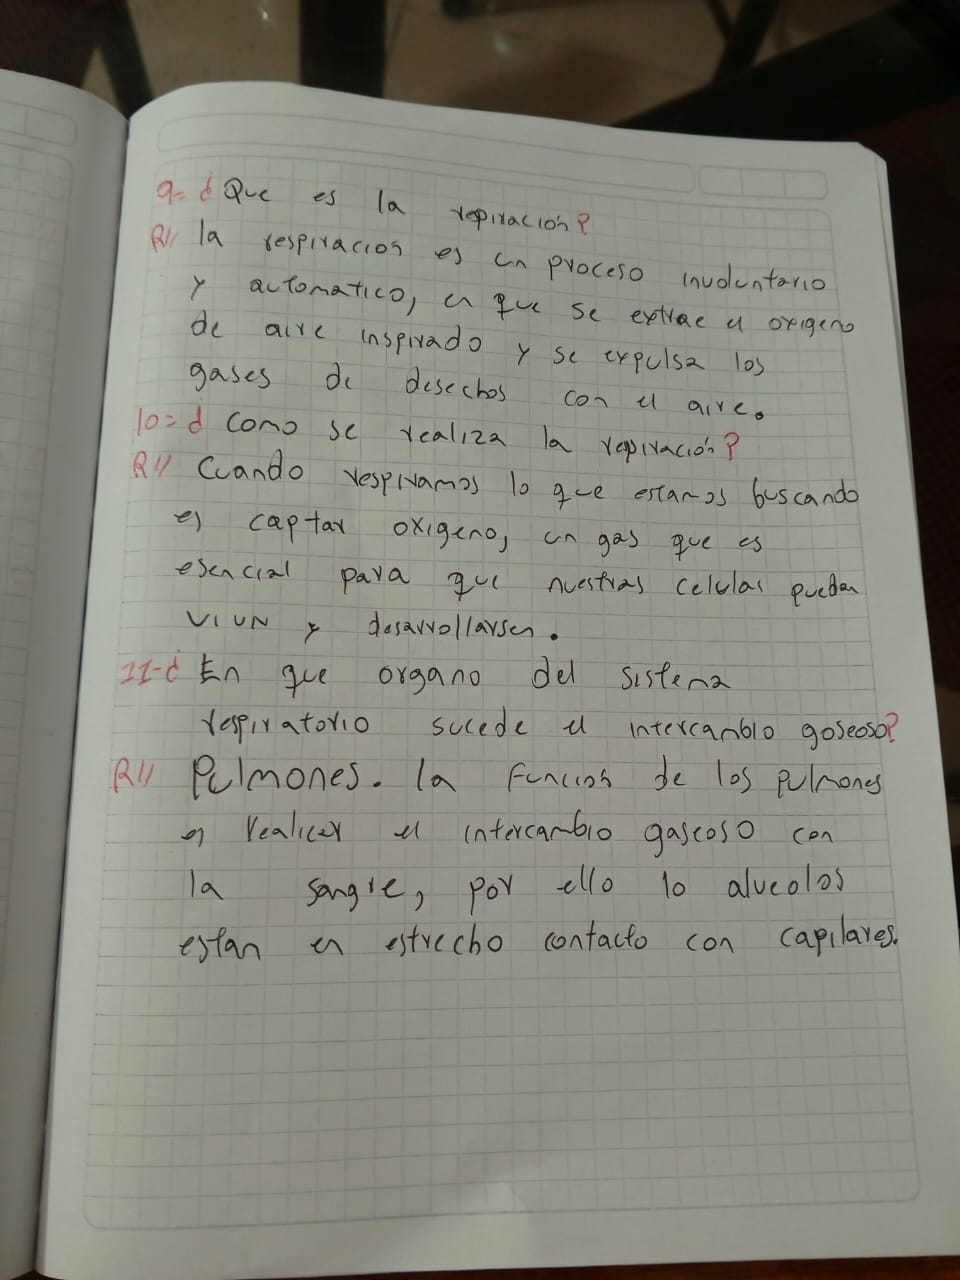 9= ¿Que es la repiración?
R// la respiracion es un proceso involuntario
y automatico, en que se extrae el oxigeno
de aire inspirado y se expulsa los
gases de desechos con el aire.
10= ¿ Como se realiza la repiración?
R// Cuando respiramos lo que estamos buscando
es captar oxigeno, un gas que es
esencial para que nuestras celulas puedan
vivir y desarrollarsen.
11-¿ En que organo del sistema
respiratorio sucede el intercambio gaseoso?
R// Pulmones. la Funcion de los pulmones
es realizar el intercambio gaseoso con
la sangre, por ello lo alveolos
estan en estrecho contacto con capilares.